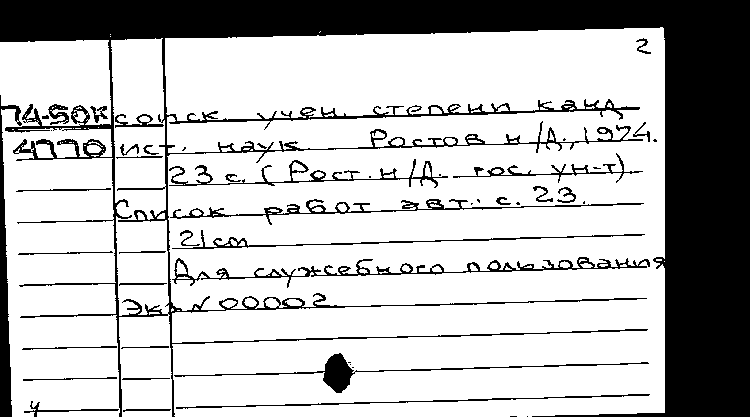 2
74-50к соиск. учен. степени канд
4770 ист. наук. Ростов н/Д., 1974.
23 с. (Рост. н/Д. гос. ун-т).
Список работ авт.: с. 23.
21 cm
Для служебного пользования
Экз N 00002
4